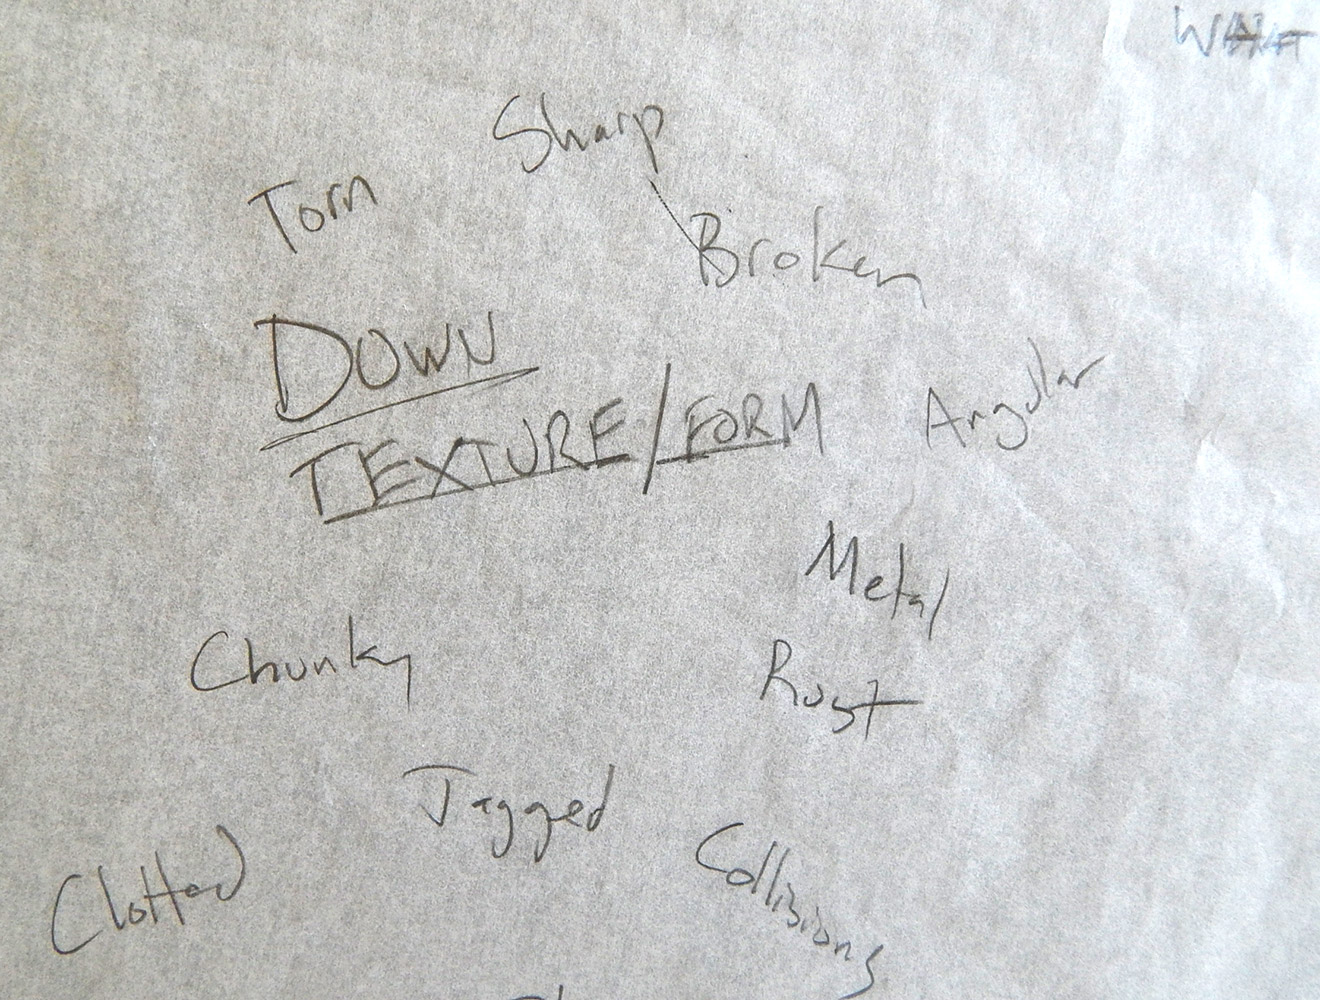 Sharp
Torn
Broken
DOWN
TEXTURE/FORM
Angular
Metal
Chunky
Rust
Jagged
Clotted
Collisions